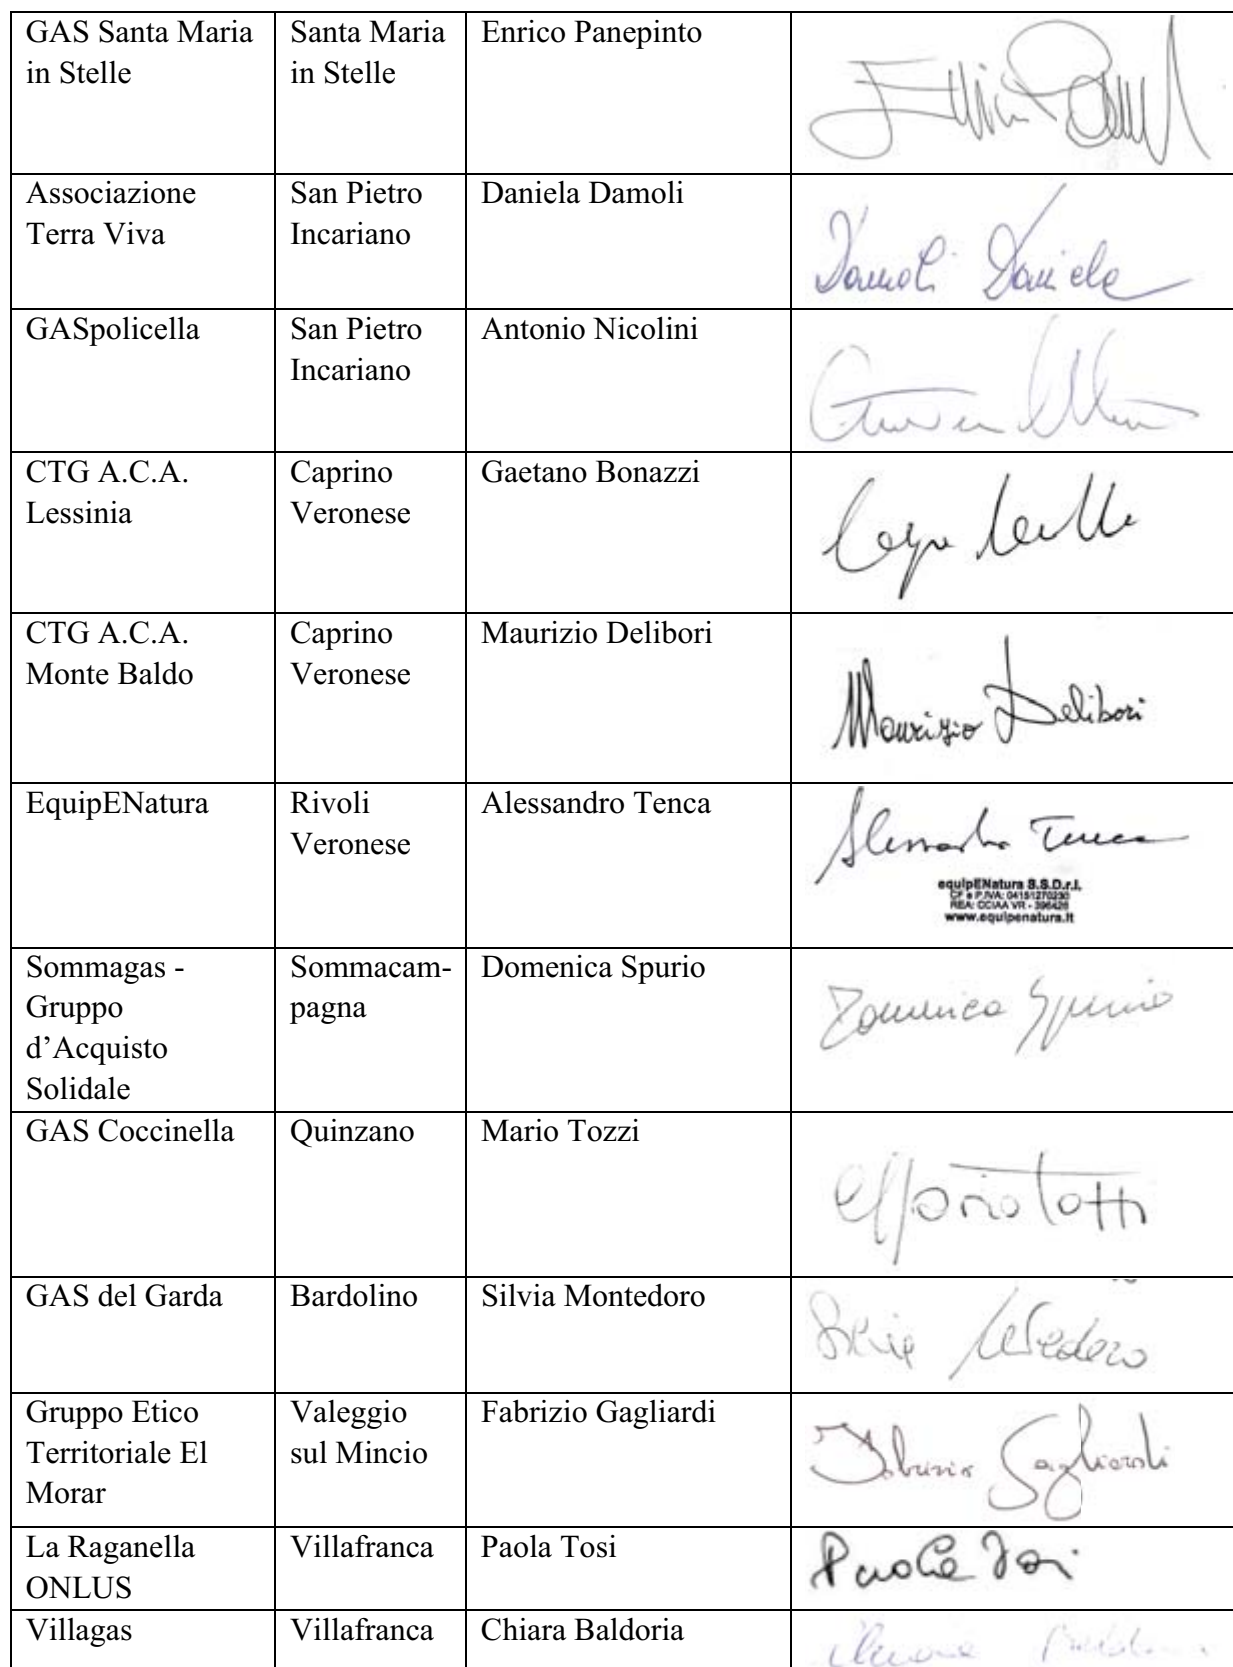 GAS Santa Maria
in Stelle
Santa Maria
in Stelle
Enrico Panepinto
Associazione
Terra Viva
San Pietro
Incariano
Daniela Damoli
Damoli Daniela
GASpolicella
San Pietro
Incariano
Antonio Nicolini
CTG A.C.A.
Lessinia
Caprino
Veronese
Gaetano Bonazzi
CTG A.C.A.
Monte Baldo
Caprino
Veronese
Maurizio Delibori
Maurizio Delibori
EquipENatura
Rivoli
Veronese
Alessandro Tenca
Alessandro Tenca
equipENatura S.S.D.r.l.
CF e P.IVA: 04151270230
REA: CCIAA VR - 396426
www.equipenatura.it
Sommagas -
Gruppo
d’Acquisto
Solidale
Sommacam-
pagna
Domenica Spurio
Domenica Spurio
GAS Coccinella
Quinzano
Mario Tozzi
Mario Tozzi
GAS del Garda
Bardolino
Silvia Montedoro
Gruppo Etico
Territoriale El
Morar
Valeggio
sul Mincio
Fabrizio Gagliardi
Fabrizio Gagliardi
La Raganella
ONLUS
Villafranca
Paola Tosi
Paola Tosi
Villagas
Villafranca
Chiara Baldoria